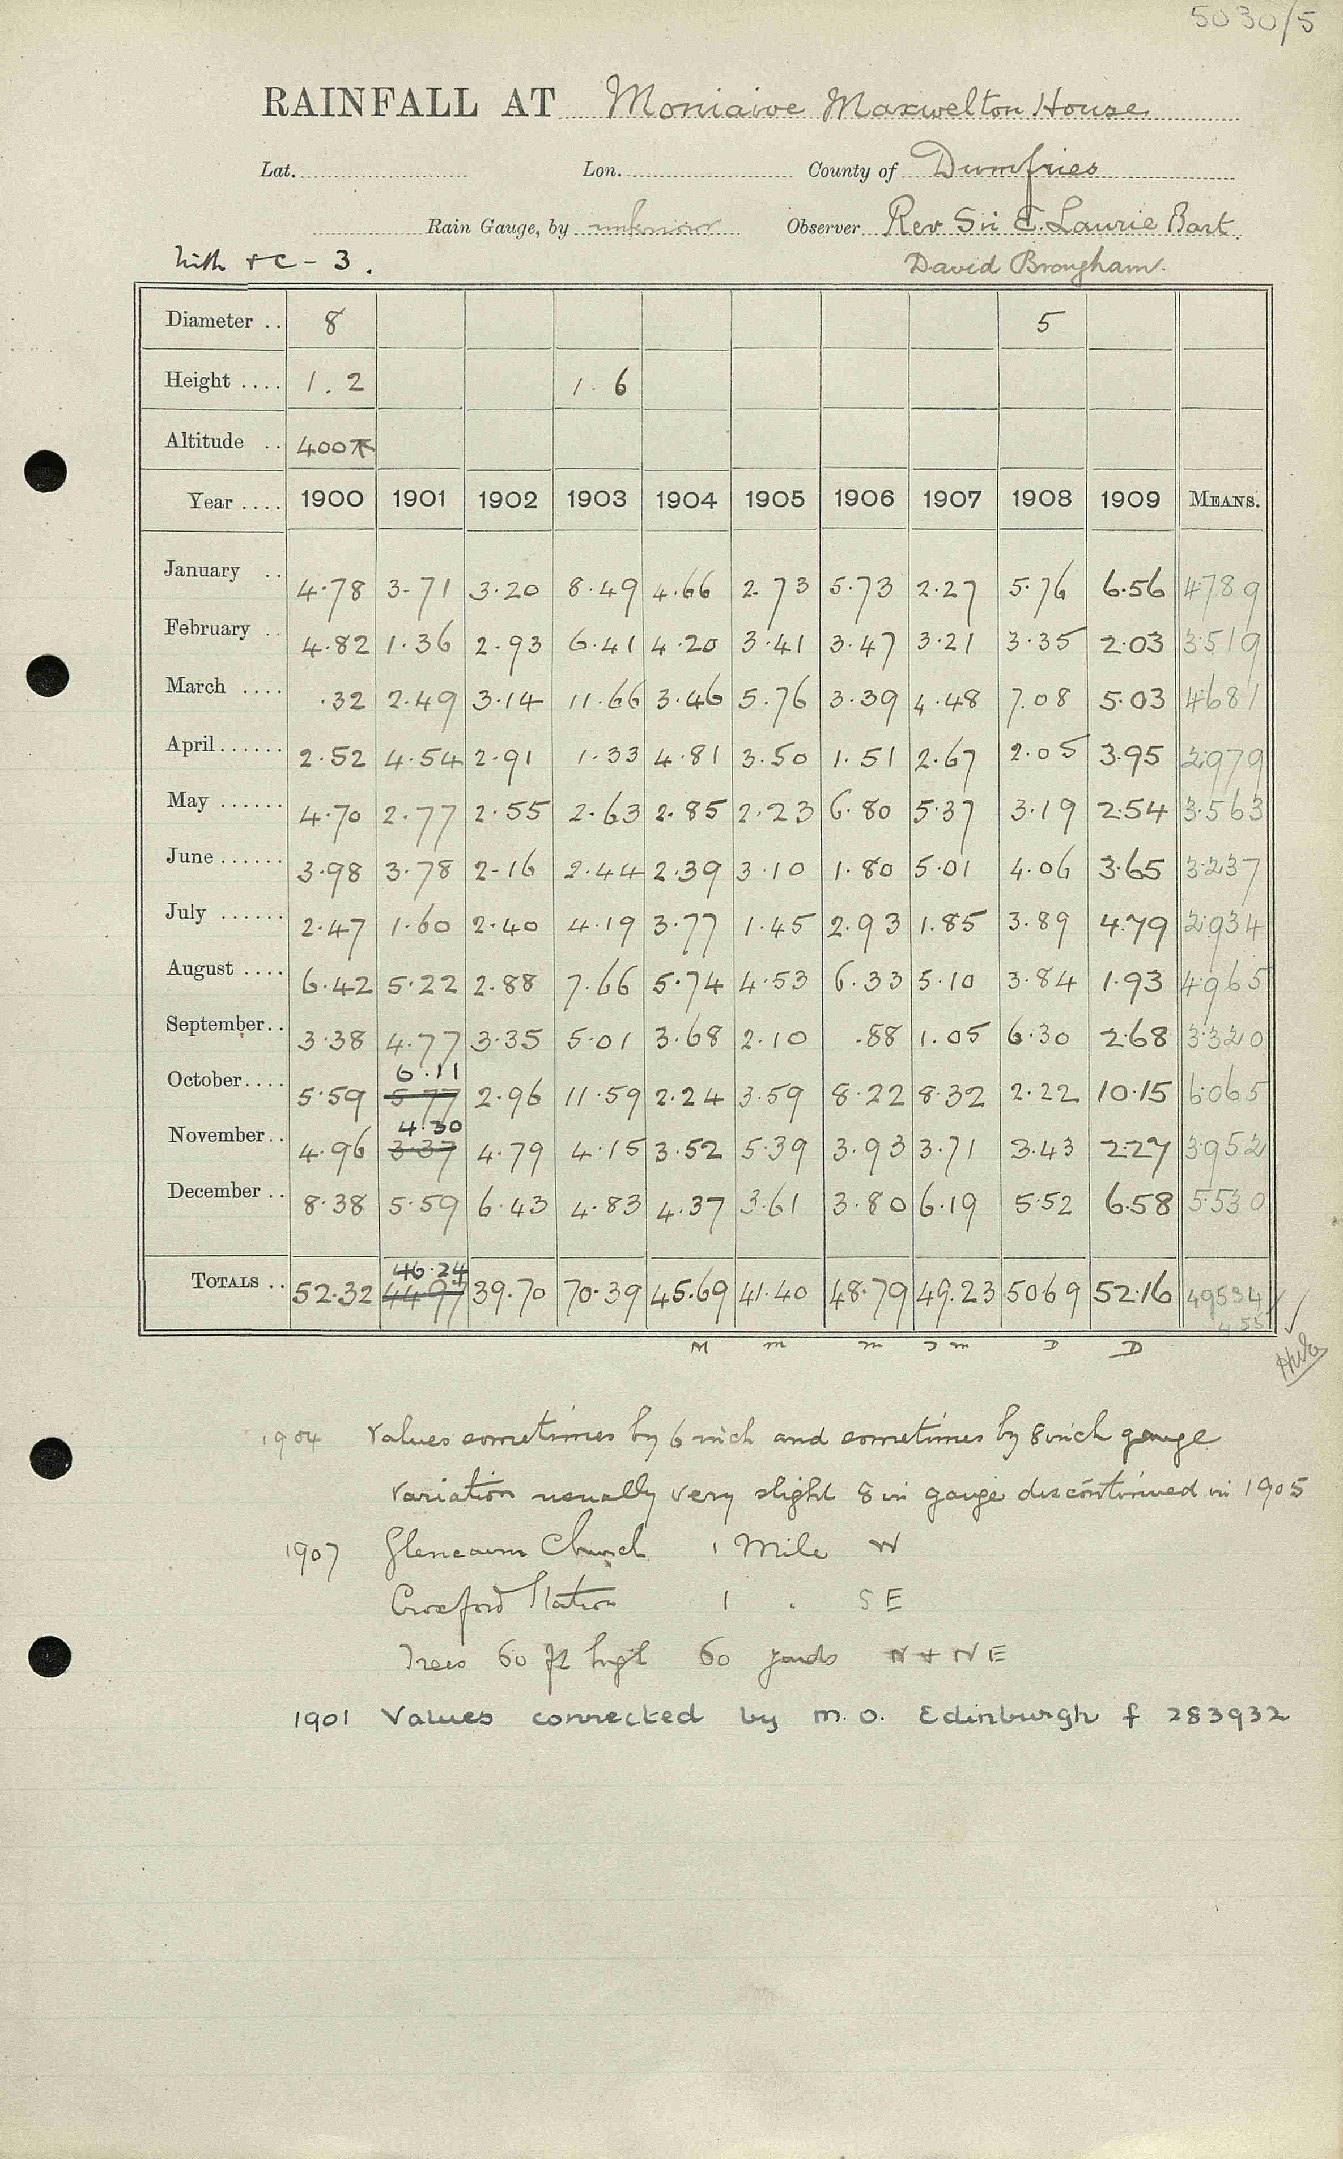 5030/5
RAINFALL AT Moniaive Maxwelton House
Lat. Lon. County of Dumfries
Rain Gauge, by unknown Observer Rev Sir E. Laurie Bart.
Nith + C - 3. David Brougham.
Diameter .. 8 5
Height .... 1.2 1.6
Altitude .. 400
Year .... 1900 1901 1902 1903 1904 1905 1906 1907 1908 1909 MEANS.
January .. 4.78 3.71 3.20 8.49 4.66 2.73 5.73 2.27 5.76 6.56 4.789
February .. 4.82 1.36 2.93 6.41 4.20 3.41 3.47 3.21 3.35 2.03 3.519
March .... .32 2.49 3.14 11.66 3.46 5.76 3.39 4.48 7.08 5.03 4.681
April ...... 2.52 4.54 2.91 1.33 4.81 3.50 1.51 2.67 2.05 3.95 2.979
May ...... 4.70 2.77 2.55 2.63 2.85 2.23 6.80 5.37 3.19 2.54 3.563
June ...... 3.98 3.78 2.16 2.44 2.39 3.10 1.80 5.01 4.06 3.65 3.237
July ...... 2.47 1.60 2.40 4.19 3.77 1.45 2.93 1.85 3.89 4.79 2.934
August .... 6.42 5.22 2.88 7.66 5.74 4.53 6.33 5.10 3.84 1.93 4.965
September.. 3.38 4.77 3.35 5.01 3.68 2.10 .88 1.05 6.30 2.68 3.320
6.11
October.... 5.59 5.77 2.96 11.59 2.24 3.59 8.22 8.32 2.22 10.15 6.065
4.30
November.. 4.96 3.37 4.79 4.15 3.52 5.39 3.93 3.71 3.43 2.27 3.952
December .. 8.38 5.59 6.43 4.83 4.37 3.61 3.80 6.19 5.52 6.58 5.530
46.24
TOTALS .. 52.32 44.97 39.70 70.39 45.69 41.40 48.79 49.23 50.69 52.16 49534
M m m D D
1904 Values sometimes by 6 inch and sometimes by 8 inch gauge
Variation usually very slight 8 in gauge discontinued in 1905
1907 Glencairn Church 1 Mile W
Crossford Station 1 " SE
Trees 60 ft high 60 yards N + NE
1901 Values corrected by M.O. Edinburgh f 283932